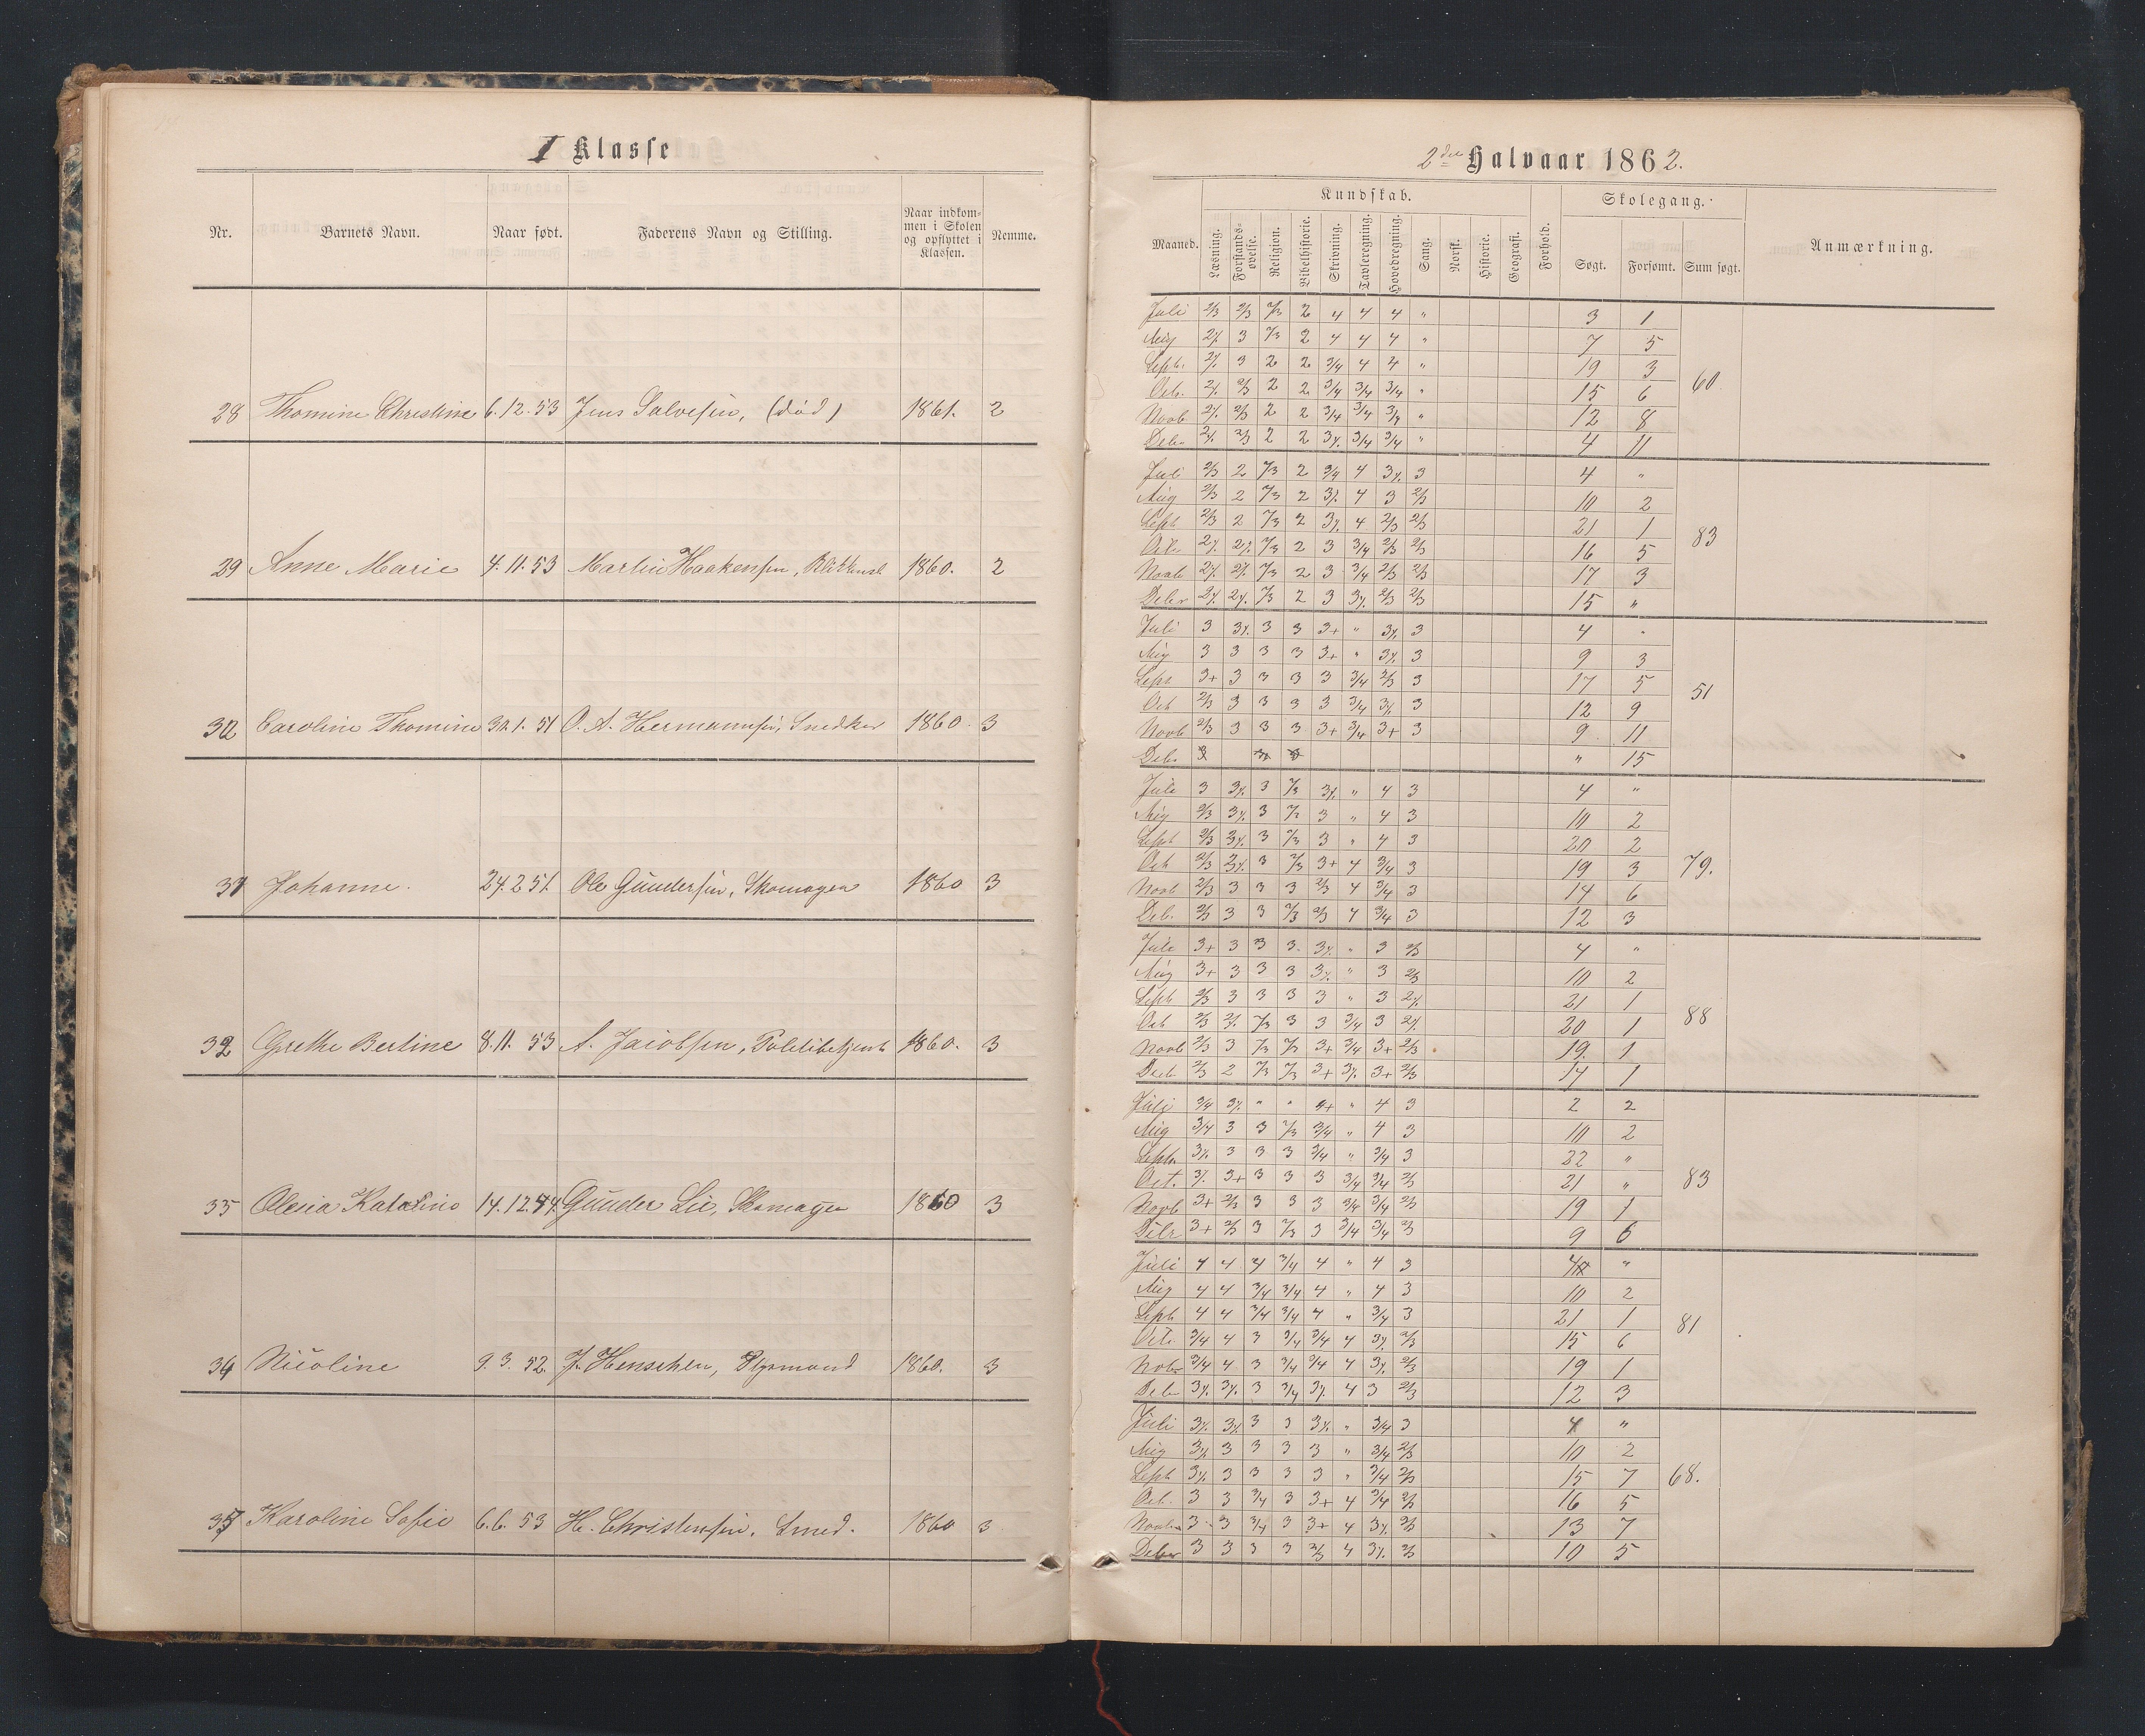 I Klasse
Nr. Barnets Navn. Naar født. Faderens Navn og Stilling. Naar indkommen i Skolen og opflyttet i Klassen. Nemme.
28 Thomine Christine 6.12.53 Jens Salvesen, (død) 1861. 2
29 Anne Marie 4.11.53 Martin Haakensen, 1860. 2
30 Caroline Thomine 30.1.51 O. A. Hermannsen, Snedker 1860 3
31 Johanne. 24.2 51. Ole Gundersen, Skomager 1860 3
32 Grethe Bertine 8.11.53 A. Jacobsen, Politibetjent 1860. 3
33 Olesia 14.12. Gunder Lie, Skomager 1860 3
34 Nicoline 9.3.52. J. Henschen, Styrmand 1860. 3
35 Karoline Sofie 6.6.53 H. Christensen, Smed. 1860 3
2den Halvaar 1862.
Kundskab. Skolegang.
Maaned. Læsning. Forstandsøvelse. Religion. Bibelhistorie. Skrivning. Tavleregning. Hovedregning. Sang. Norsk. Historie. Geografi. Forhold. Søgt. Forsømt. Sum søgt. Anmærkning.
Juli 2/3 2/3 2/3 2 4 4 4 " 3 1
Aug 3 2/3 2 4 4 4 " 7 5
Septb. 3 2 2 3/4 4 4 " 19 3
Octb. 2/3 2 2 3/4 3/4 3/4 " 15 6 60
Novb 2/3 2 2 3/4 3/4 3/4 " 12 8
Debr 2/3 2 2 3/4 3/4 " 4 11
Juli 2/3 2 2/3 2 3/4 4 3 4 "
Aug 2/3 2 2/3 2 4 3 2/3 10 2
Septb 2/3 2 2/3 2 4 2/3 2/3 21 1
Octb 2/3 2 3 3/4 2/3 2/3 16 5 83
Novb 2/3 2 3 3/4 2/3 2/3 17 3
Debr 2/3 2 3 2/3 2/3 15 "
Juli 3 3 3 3+ " 3 4 "
Aug 3 3 3 3 3+ " 3 9 3
Sept 3+ 3 3 3 3 3/4 2/3 3 17 5
Octb 2/3 3 3 3 3 3/4 3 12 9 51
Novb 2/3 3 3 3 3+ 3/4 3+ 3 9 11
Debr " 15
Juli 3 3 2/3 " 4 3 4 "
Aug 2/3 3 2/3 3 " 4 3 10 2
Sept 2/3 3 2/3 3 " 4 3 20 2
Octb 2/3 3 2/3 3+ 4 3/4 3 19 3 79.
Novb 2/3 3 3 3 2/3 4 3/4 3 14 6
Deb. 2/3 3 3 2/3 2/3 4 3/4 3 12 3
Juli 3+ 3 3 3. " 3 2/3 4 "
Aug 3+ 3 3 3 " 3 2/3 10 2
Septb 2/3 3 3 3 3 " 3 21 1
Octb 2/3 2/3 3 3 3/4 3 20 1 88
Novb 2/3 3 2/3 2/3 3+ 3/4 3+ 2/3 19. 1
Decb 2/3 2 2/3 2/3 3+ 3+ 2/3 14 1
Juli 3/4 " " " 4 3 2 2
Aug 3/4 3 3 2/3 3/4 " 4 3 10 2
Septb. 3 3 3 3/4 " 3/4 3 22 "
Oct. 3+ 3 3 3 3/4 3/4 2/3 21 " 83
Novb 3+ 2/3 3 3 3 3/4 3/4 2/3 19 1
Debr 3+ 2/3 3 2/3 3 3/4 3/4 2/3 9 6
Juli 4 4 4 3/4 4 " 4 3 4 "
Aug 4 4 3/4 3/4 4 " 4 3 10 2
Septb 4 4 3/4 3/4 4 " 3/4 3 21 1
Octb 3/4 4 3 3/4 3/4 4 2/3 15 6 81
Novbr 3/4 4 3 3/4 3/4 4 2/3 19 1
Debr 3 3/4 4 3 2/3 12 3
Juli 3 3 " 3/4 3 4 "
Aug 3 3 3 3 " 3/4 2/3 10 2
Septb 3 3 3 3 " 3/4 2/3 15 7 68.
Octb. 3 3 3/4 3 3+ 4 3/4 2/3 16 5
Novbr 3 3 3/4 3 3+ 4 2/3 13 7
Debr 3 3 3 3 2/3 4 2/3 10 5